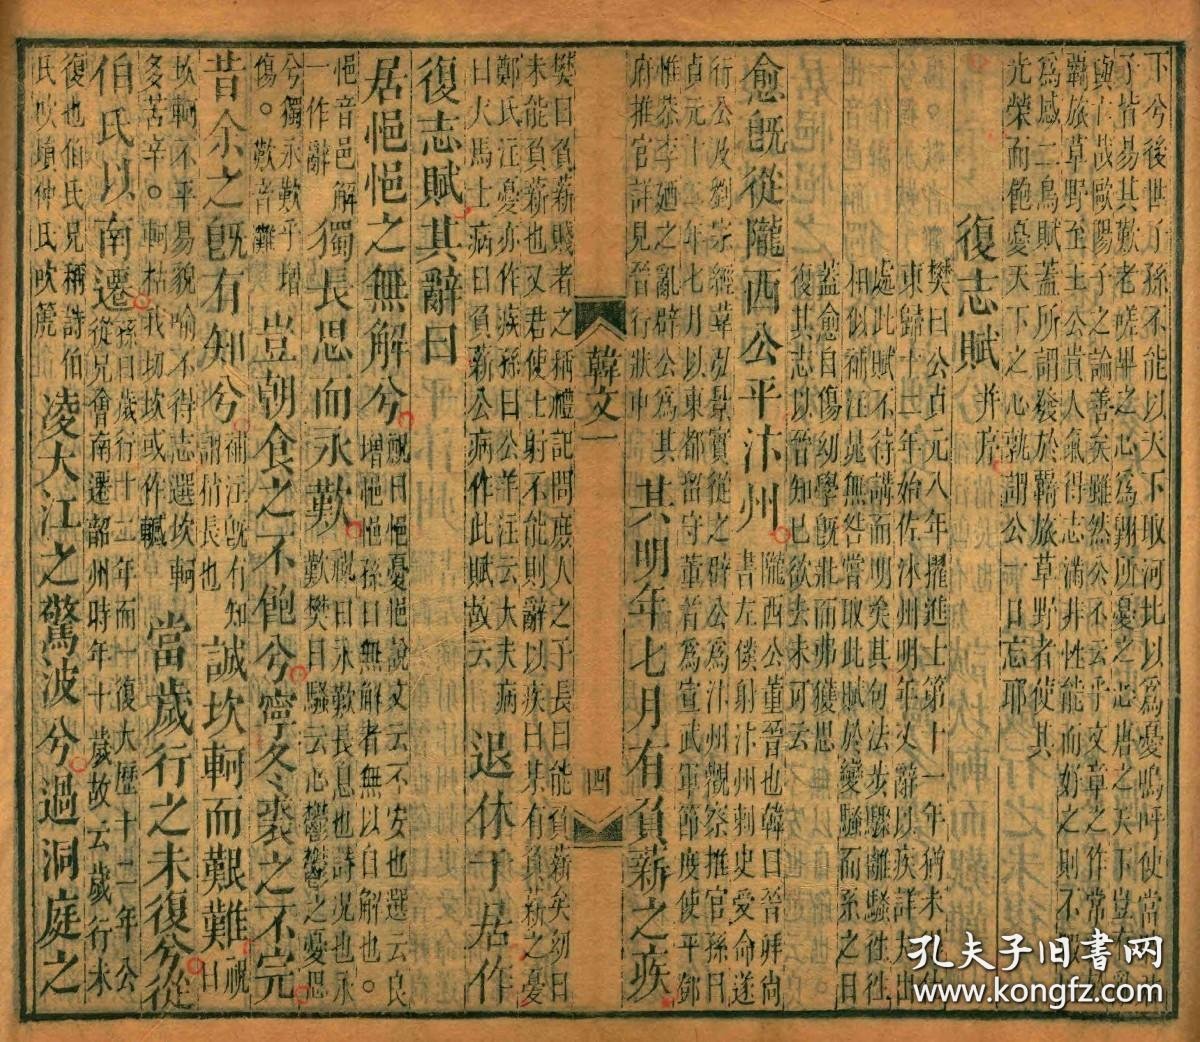 下兮後世子孫不能以天下取河北以爲憂嗚呼使當
子皆易其歎老嗟卑之心爲翺所憂之心唐之天下豈有亂
與亡哉歐陽子之論善矣雖然公不云乎文章之作常
覊旅草野至王公貴人氣得志滿非性能而好之則不
爲感二鳥賦蓋所謂發於覊旅草野者使其
光榮而飽憂天下之心孰謂公一日忘耶
復志賦并序
樊曰公貞元八年擢進士第十一年猶未
東歸十二年始佐汴州明年又辭以疾詳
處此賦不待講而明矣其句法步驟離騷往往
相似補注晁無咎嘗取此賦於變騷而系之曰
蓋愈自傷幼學旣壯而弗獲思
復其志以晉知己欲去未可云
愈旣從隴西公平汴州
隴西公董晉也韓曰晉拜尚
書左僕射汴州刺史受命遂
行公及劉宗經韋弘景實從之辟公爲汴州觀察推官孫曰
貞元十二年七月以東都留守董晉爲宣武軍節度使平鄧
惟恭李廼之亂辟公爲其
府推官詳見晉行狀中
其明年七月有負薪之疾
韓文一
四
樊曰負薪賤者之稱禮記問庶人之子長曰能負薪矣幼曰
未能負薪也又君使士射不能則辭以疾曰某有負薪之憂
鄭氏注憂亦作疾孫曰公羊注云大夫病
曰犬馬士病曰負薪公病作此賦故云
退休于居作
復志賦其辭曰
居悒悒之無解兮
祝曰悒憂悒說文云不安也選云良
增悒悒孫曰無解者無以自解也。
悒音邑解
一作辭
獨長思而永歎
祝曰永歎長息也詩況也永
歎樊曰騷云心鬱鬱之憂思
兮獨永歎乎增
傷。歎音難
豈朝食之不飽兮寧冬裘之不完
昔余之旣有知兮
補注旣有知
謂稍長也
誠坎軻而艱難
祝曰
坎軻不平易貌喻不得志選坎軻
多苦辛。軻枯我切坎或作轗
當歲行之未復兮從
伯氏以南遷
孫曰歲行十二年而一復大歷十二年公
從兄會南遷韶州時年十歲故云歲行未
復也伯氏兄稱詩伯
氏吹塤仲氏吹篪
凌大江之驚波兮過洞庭之
孔夫子旧書网
www.kongfz.com